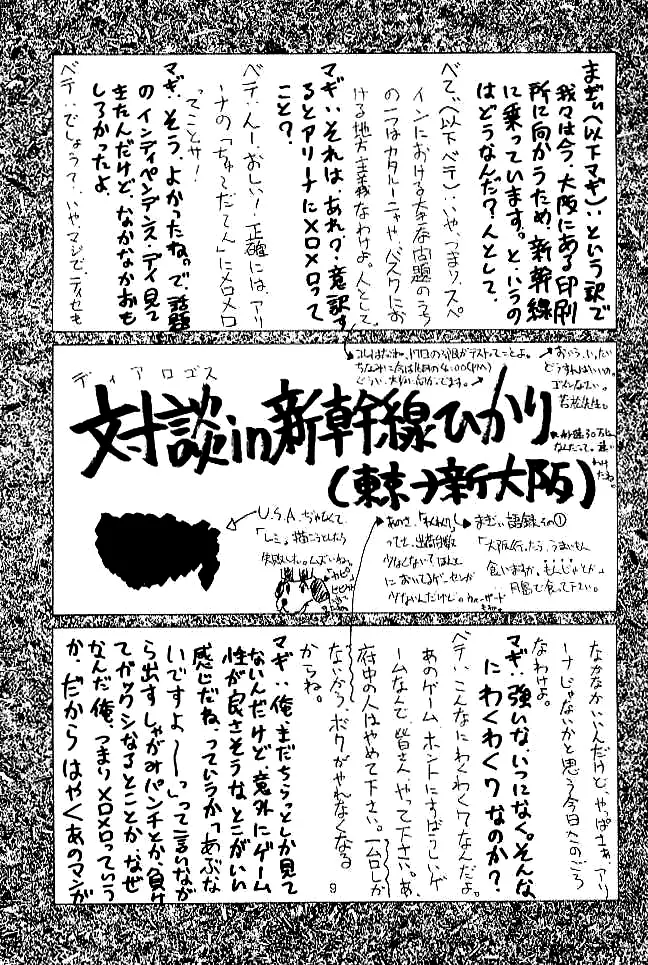 まざい(以下マギ)：という訳で
我々は今、大阪にある印刷
所に向かうため、新幹線
に乗っています。と、いうの
はどうなんだ？人として。
べて(以下ベテ)：いや、つまり、スペ
インにおける大きな問題のうち
の一つはカタルーニャや、バスクにお
ける地方主義なわけよ。人として
マギ：それは、あれか？意訳す
るとアリーナにメロメロって
こと？
ベテ：んー、おしい！正確には、アリ
ーナの「ちゅてだてん」にメロメロ
ってことサ！
マギ：そう、よかったね。で、話題
のインディペンデンス・デイ見て
きたんだけど、なかなかおも
しろかったよ。
ベテ：でしょうて、いやマジで、ティセも
ディアロゴス
対談in新幹線ひかり
(東京→新大阪)
おいう、いったい
どうすんだいいの。
ゴメンなさい。
若松先生。
ちなみに今は16日の4:00(PM)
どうい、大阪に向かってます。
秒速30万km
なんだって。速い
わけ
だね。
U.S.A.ぢゃなくて、
「レミ」描こうとしたら
失敗した。ムズいね。
まざい語録その①
「大阪行ったら、うまいもん
食いますか。もんじゃとか」
月島で食って下さい。
あのさ、「わくわく7」
ってさ、出荷台数
少なくないて、ほんと
においてるゲーセンが
少ないんだけど。
なかなかいいんだけど、やっぱさぁ、アリ
ーナじゃないかと思う今日このごろ
なわけよ。
マギ：強いな、いつになく。そんな
にわくわく7なのか？
ベテ：こんなにわくわく7なんだよ。
あのゲーム ホントにすばらしいゲ
ームなんで、皆さん、やって下さい。あ、
府中の人はやめて下さい。一台しか
ないから、ボクがやれなくなる
からね。
マギ：俺、まだちらっとしか見て
ないんだけど、意外にゲーム
性が良さそうな、とこがいい
感じだね、っていうか「あぶな
いですよ〜〜っ」って言いなが
ら出すしゃがみパンチとか、負け
てガックシなるとことか、なぜ
なんだ俺、つまりメロメロっていう
か、だからはやくあのマンガ
9